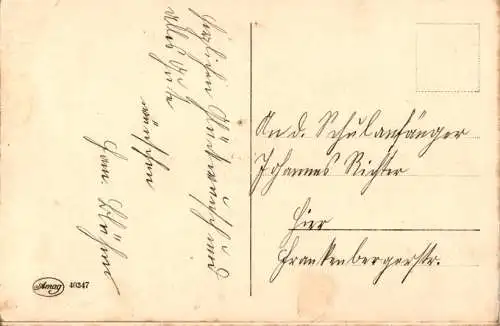 Herzlichen Glückwunsch und
alles Gute
wünschen
Fam.
An d. Schulanfänger
Johannes Richter
Hier
Frankenbergerstr.
Amag 40247